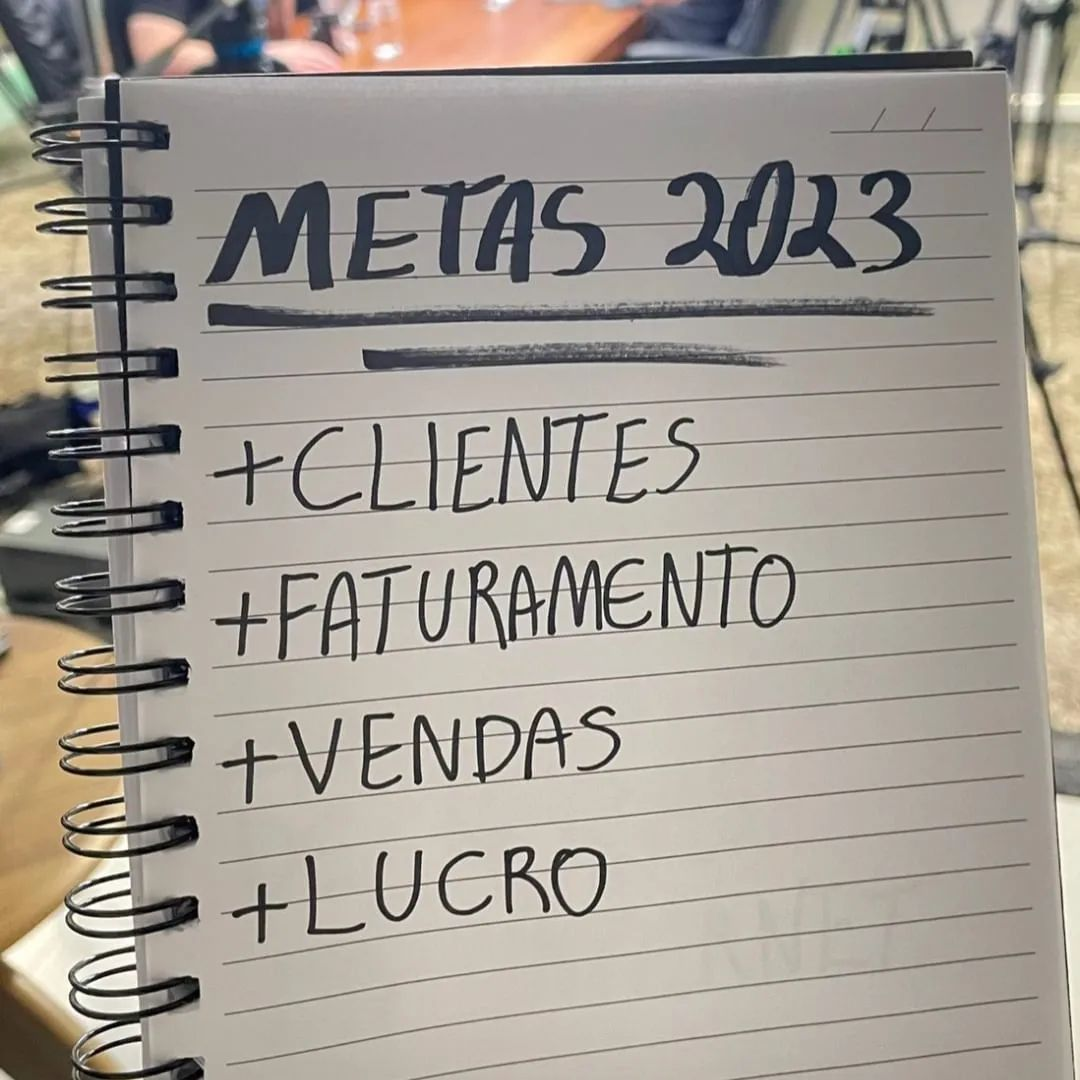 / /
METAS 2023
+CLIENTES
+FATURAMENTO
+VENDAS
+LUCRO